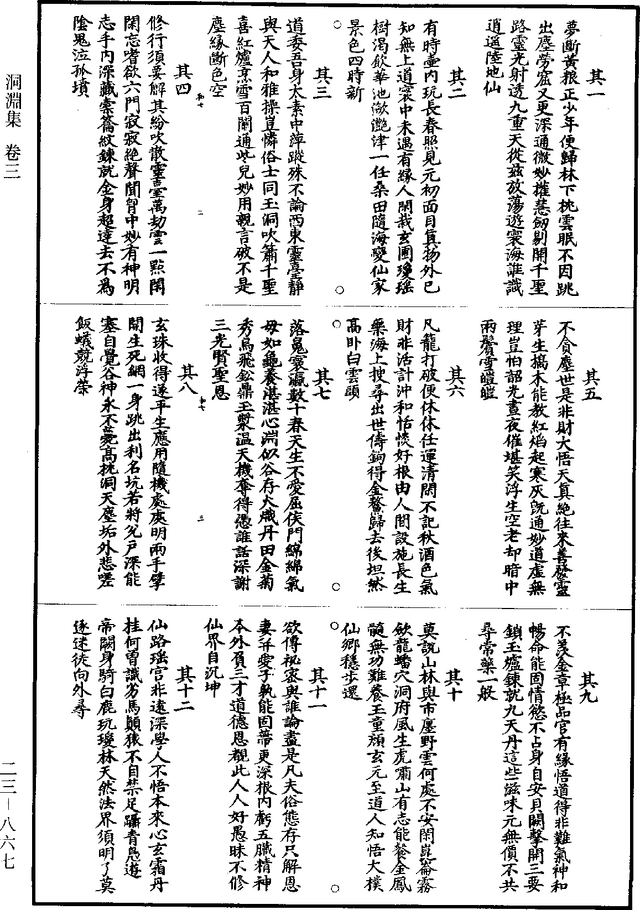 洞淵集 卷三
其一
夢斷黃粮正少年便歸林下挑雲眠不因跳
出塵勞窟又更深通微妙權慧劒剔開千聖
路靈光射透九重天從兹放蕩遊寰海誰識
逍遥陸地仙
其二
有時壷内玩長春照見元初面目真物外已
知無上道寰中未遇有緣人閑栽玄圃瓊瑶
樹渴飲華池瀲灔津一任桑田隨海變仙家
景色四時新
其三
道委吾身太素中萍蹤殊不論西東靈臺靜
與天人和雅操豈憐俗士同玉洞吹簫千聖
喜紅爐烹雪百關通些兒妙用親言破不是
塵緣斷色空
其四
修行須要解其紛吹散靈臺萬劫雲一點閑
閑忘嗜欲六門寂寂絶聲聞胷中妙有神明
志手内深藏雲篆紋鍊就金身超達去不爲
陰鬼泣孤墳
其五
不貪塵世是非財大悟天真絶往來善發靈
芽生搞木能教紅焰起寒灰旣通妙道虛無
理豈怕韶光晝夜催堪笑浮生空老却暗中
兩鬢雪皚皚
其六
凡龍打破便休休任運清閑不記秋酒色氣
財非活計沖和恬惔好根由人間設施長生
藥海上搜尋出世儔鉤得金鼇歸去後坦然
高卧白雲頭
其七
落魄寰瀛數十春天生不愛屈侯門綿綿氣
母如龜養湛湛心淵似谷存火熾丹田金菊
秀烏飛鈆鼎玉漿温天機奪得憑誰話深謝
三光賢聖恩
其八
玄珠收得遂平生應用隨機處處明兩手擘
開生死網一身跳出利名坑若將兊戸深能
塞自覺谷神永不驚高枕洞天塵垢外悲嗟
飯蟻競浮榮
其九
不羡金章極品官有緣悟道得非難氣神和
暢命能固情慾不占身自安貝闕擊開三要
鎖玉爐鍊就九天丹這些滋味元無價不共
尋常藥一般
其十
莫説山林與市塵野雲何處不安閑崑崙霧
斂龍蟠穴洞府風生虎嘯山有志能餐金鳳
髓無功難養玉童顔玄元至道人知悟大樸
仙鄉穩步還
其十一
欲傳祕密與誰論盡是凡夫俗態存只解恩
妻并愛子孰能固蔕更深根内虧五臟精神
本外負三才道德恩觀此人人好愚昧不修
仙界自沉坤
其十二
仙路瑶宫非遠深學人不悟本來心玄霜丹
桂何曾識劣馬顛猿不自禁足躡青鳬遊
帝闕身騎白鹿玩瓊林天然法界須明了莫
逐迷徒向外尋
二三－八六七